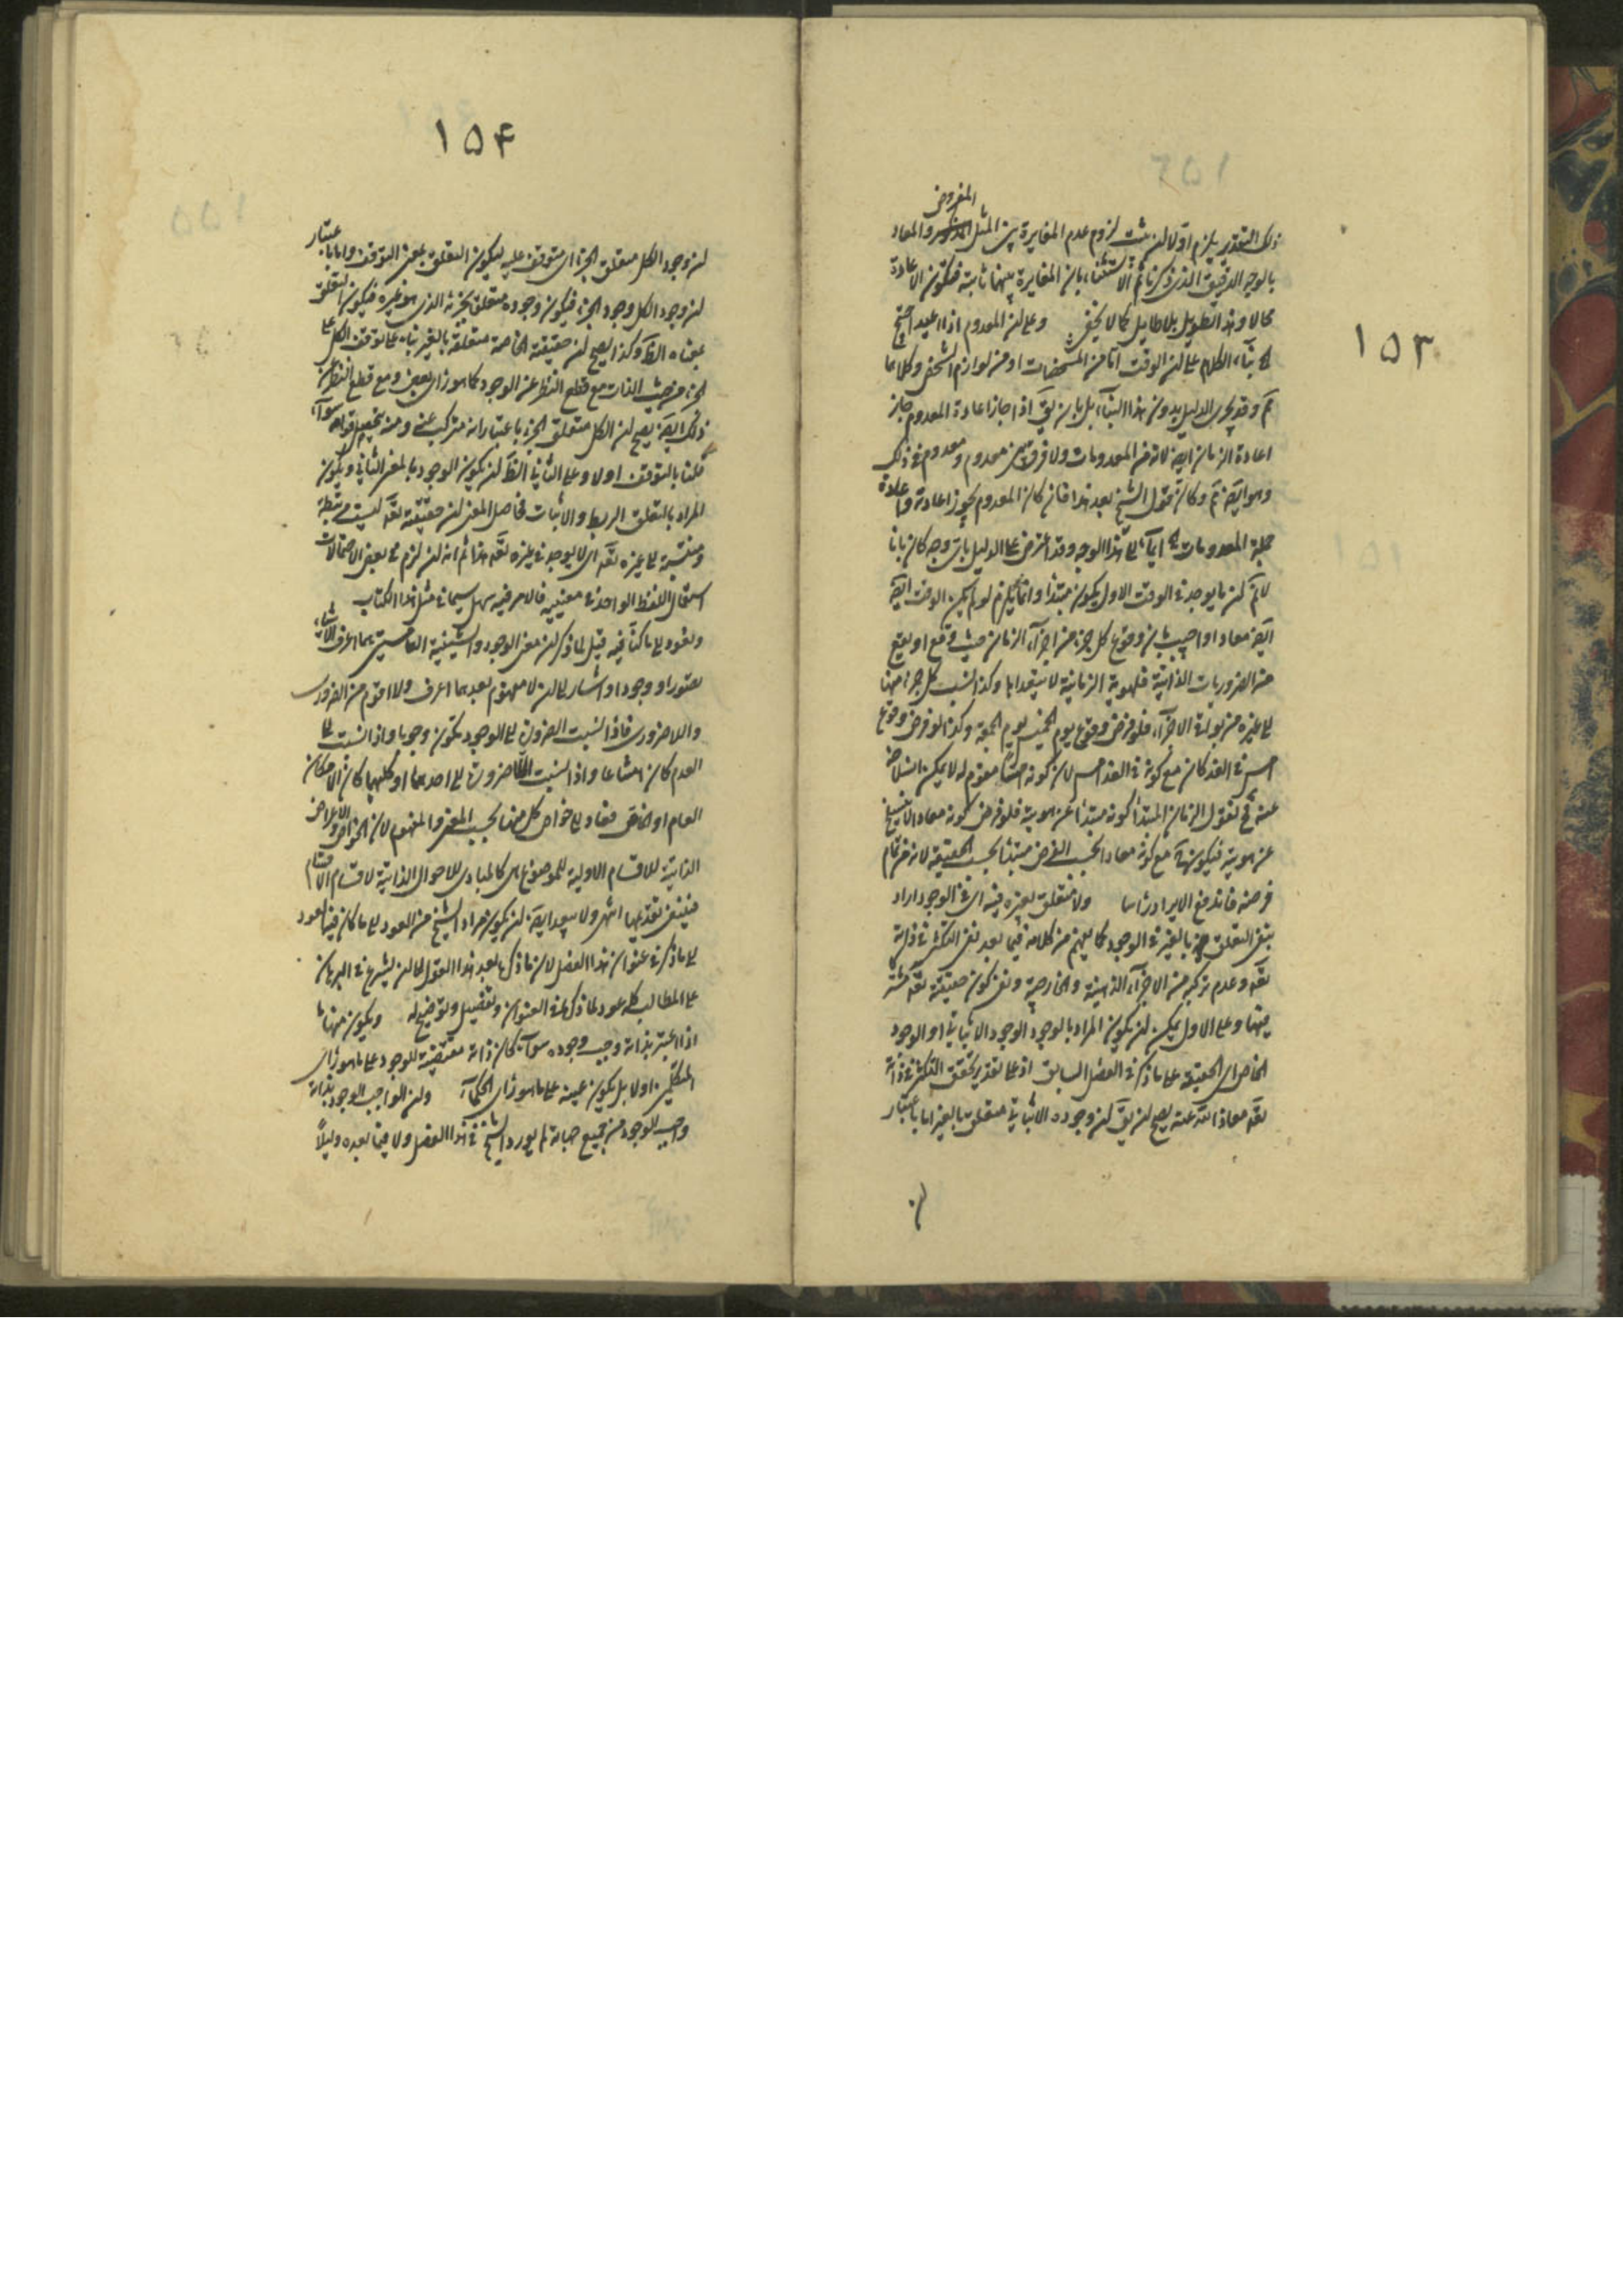 ۱۵۳
المفروض
ذلك التقدير يلزم اولا ان يثبت لزوم عدم المغايرة بين المثل والمعاد
بالوجه الدقيق الذى ذكرنا ثم الاستثناء بان المغايرة بينهما ثابتة فتكون الاعادة
محالا وهذا تطويل بلا طايل كما لا يخفى وعلى ان المعدوم اذا اعيد احتج
بناء الكلام على ان الوقت اما من المشخصات او من لوازم الشخص وكلاهما
مم وقد يجرى الدليل بدون هذا البناء بل بان يق اذا جاز اعادة المعدوم جاز
اعادة الزمان ايضا لانه من المعدومات ولا فرق بين معدوم ومعدوم فى ذلك
وهو ايضا مم وكان قول الشيخ بعد هذا فان كان المعدوم يجوز اعادته واعادة
جملة المعدومات ايماء الى هذا الوجه وقد اعترض على الدليل باى وجه كان بانا
لانم ان ما يوجد فى الوقت الاول يكون مبتدأ وانما يلزم لو لم يكن الوقت ايضا
ايضا معادا واجيب بان وقوع كل جزء من اجزاء الزمان حيث وقع او يقع
من الضروريات الذاتية فلهوية الزمانية لا يتعداها وكذا نسبة كل جزء منها
الى غيره من بواقى الاجزاء فلو فرض وقوع يوم الخميس يوم الجمعة وكذا لو فرض وقوع
امس فى الغد كان مع كونه فى الغد امس لان كونه امسا مقوم له لا يمكن انسلاخه
عنه فح نقول الزمان المبتدأ كونه مبتدأ عين هويته فلو فرض كونه معادا لا ينسلخ
عن هويته فيكون ح مع كونه معادا بحسب الفرض مبتدأ بحسب الحقيقة لانه من تمام
فرضه فاندفع الايراد راسا ولا متعلق بغيره فيه اى فى الوجود اراد
بنفى التعلق بالغير فى الوجود كما يفهم من كلامه فيما بعد نفى التكثر فى ذاته
تعه وعدم تركبه من الاجزاء الذهنية والخارجية ونفى كون حقيقته تعه
منها وعلى الاول يمكن ان يكون المراد بالوجود الوجود الاثباتى او الوجود
الخاص اى الحقيقة على ما ذكر فى الفصل السابق اذ على تقدير تحقق التكثر فى ذاته
تعه معاذ الله عنه يصح ان يق ان وجوده الاثباتى متعلق بالغير اما باعتبار
ان
۱۵۴
ان وجود الكل متعلق بالجزء اى متوقف عليه ليكون التعلق بمعنى التوقف واما باعتبار
ان وجود الكل وجود الجزء فيكون وجوده متعلق بجزئه الذى هو غيره فيكون التعلق
بمعناه الظ وكذا يصح ان حقيقته الخاصة متعلقة بالغير بناء على توقف الكل على
الجزء من حيث الذات مع قطع النظر عن الوجود كما هو رأى بعض ومع قطع النظر عن
ذلك ايضا يصح ان الكل متعلق بالجزء باعتبار انه متركب عنه ومنه يحصل قوامه سواء
قلنا بالتوقف او لا وعلى الثانى الظ ان يكون الوجود بالمعنى الثانى ويكون
المراد بالتعلق الربط والاثبات فحاصل المعنى ان حقيقته تعه ليست مرتبطة
ومنتسبة الى غيره تعه اى لا يوجد فى غيره تعه هذا ثم انه ان لزم فى بعض الاحتمالات
استعمال اللفظ الواحد فى معنييه فالامر فيه سهل سيما فى مثل هذا الكتاب
ونعود الى ما كنا فيه قيل لما ذكر ان معنى الوجود والشيئية العامتين هما اعرف الاشياء
تصورا ووجودا واشار الى ان لا مفهوم بعدهما اعرف ولا اقدم من الضرورى
واللاضرورى فاذا نسبت الضرورة الى الوجود تكون وجوبا واذا نسبت الى
العدم كان امتناعا واذا نسبت اللاضرورة الى احدهما او كليهما كان الامكان
العام او الخاص فعاد الى خواص كل منها بحسب المعنى والمفهوم لان الخواص والاعراض
الذاتية للاقسام الاولية للموضوع هى كالمبادى للاحوال الذاتية لاقسام الاقسام
فينبغى تقديمها انتهى ولا يبعد ايضا ان يكون مراد الشيخ من العود الى ما كان فيه العود
الى ما ذكر فى عنوان هذا الفصل لان ما ذكر بعد هذا القول الى ان يشرع فى البرهان
على المطالب كله عود لما ذكر فى العنوان وتفصيل وتوضيح له ويكون منها ما
اذا اعتبر بذاته وجب وجوده سواء كان ذاته مقتضية للوجود على ما هو رأى
المتكلمين او لا بل يكون عينه على ما هو رأى الحكماء وان الواجب الوجود بذاته
واجب الوجود من جميع جهاته لم يورد الشيخ فى هذا الفصل ولا فيما بعده دليلا